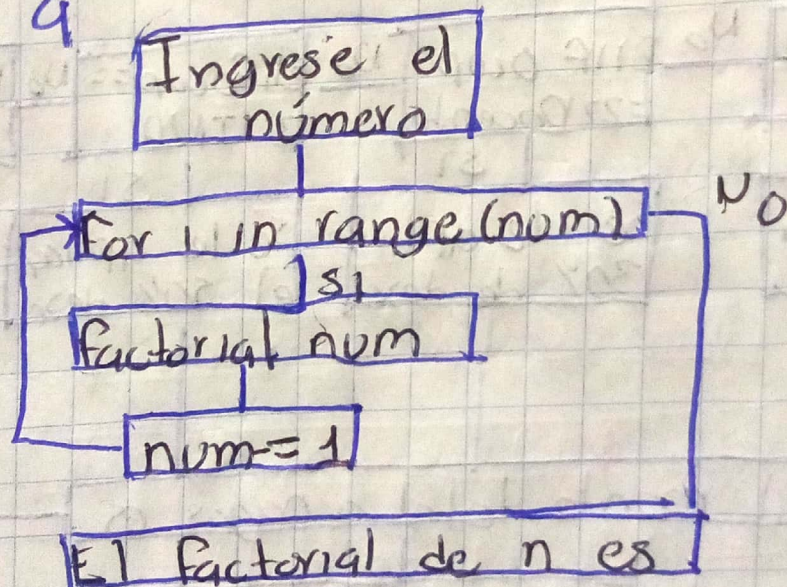 Ingrese el
número
for i in range (num)
No
si
factorial num
num-= 1
El factorial de n es